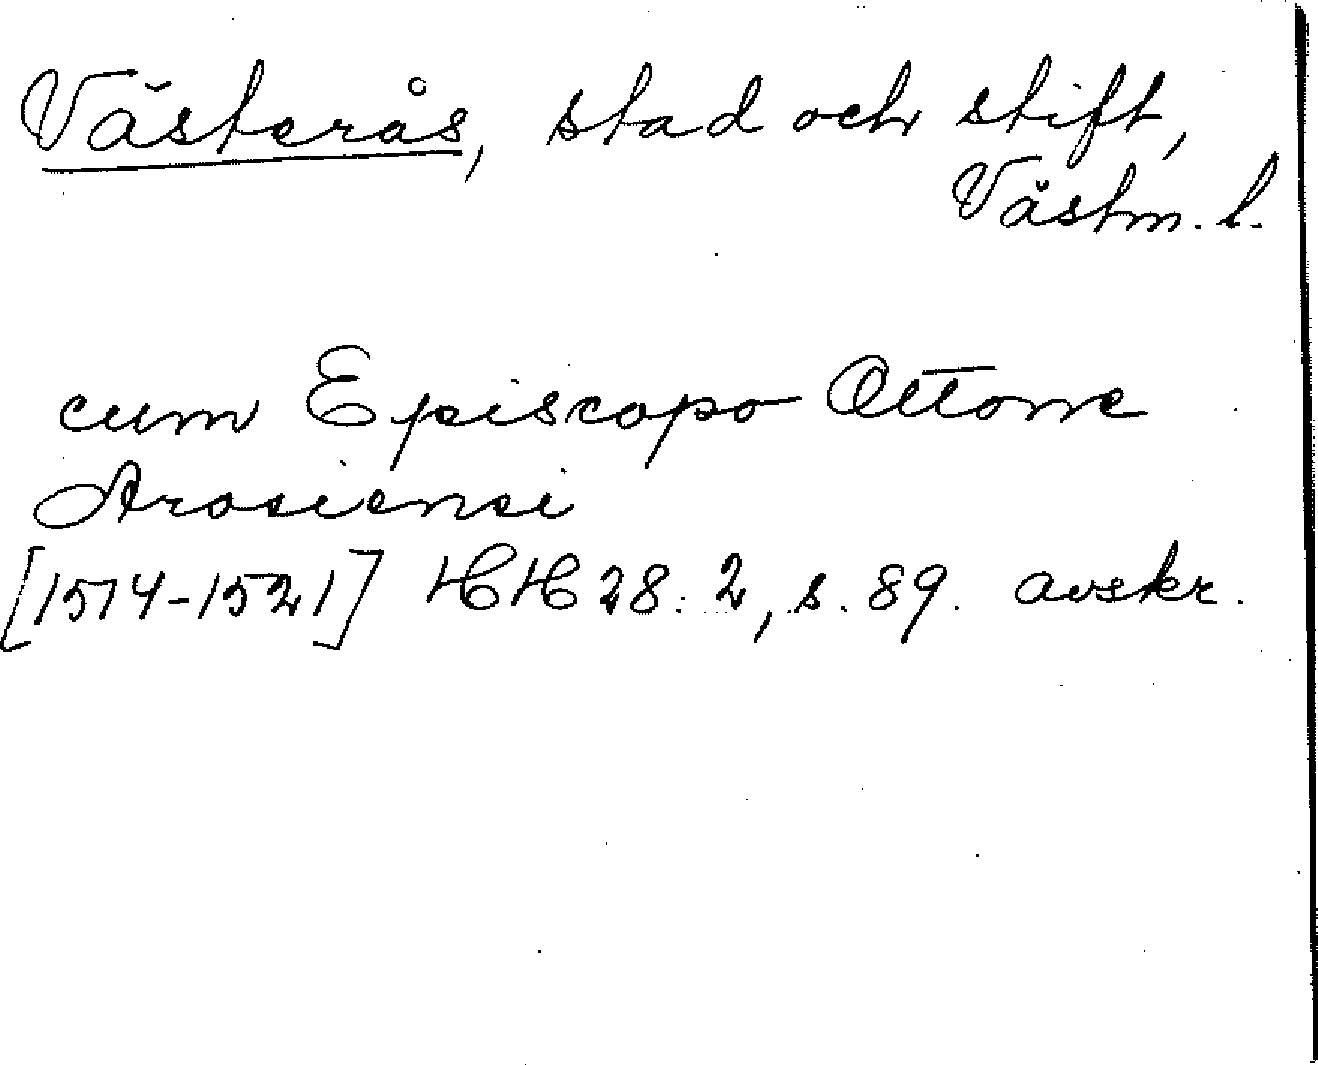 Västerås, stad och stift,
Västm. l.
cum Episcopo Ottone
Arosiensi
[1514-1521] HH 28: 2, s. 89. avskr.